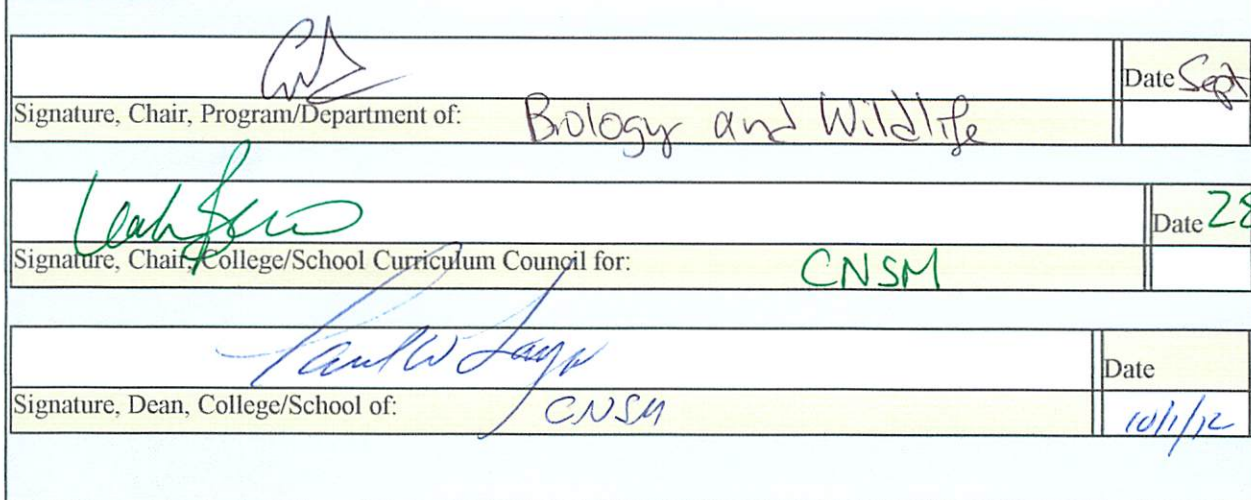 Date Sept
Signature, Chair, Program/Department of: Biology and Wildlife
Date 28
Signature, Chair, College/School Curriculum Council for: CNSM
Paul W Layer
Date
Signature, Dean, College/School of: CNSM
10/1/12